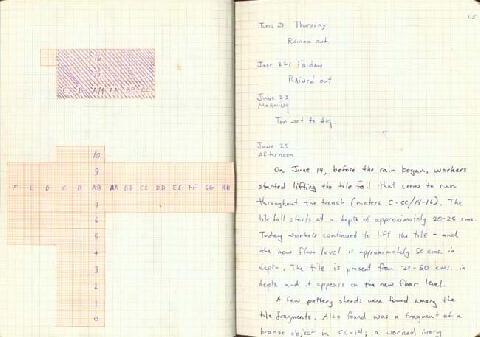 10
9
F E D C B AB AA BB CC DD EE FF GG HH
5
4
3
2
1
0
June 21 Thursday
Rained out
Friday
Rained out
June 23
Morning
Too wet to dig
June 25
Afternoon
On June 19, before the rain began, workers
started lifting the tile fall that seems to run
throughout the trench (meters C-CC/ ). The
tile fall starts at a depth of approximately 20-25 cms.
Today workers continued to lift the tile - and
the new floor level is approximately 50 cms. in
depth. The tile is present from 25-50 cms. in
depth and it appears on the new floor level.
A few pottery sherds were found among the
tile fragments. Also found was a fragment of a
bronze object in CC/ ; a worked ivory